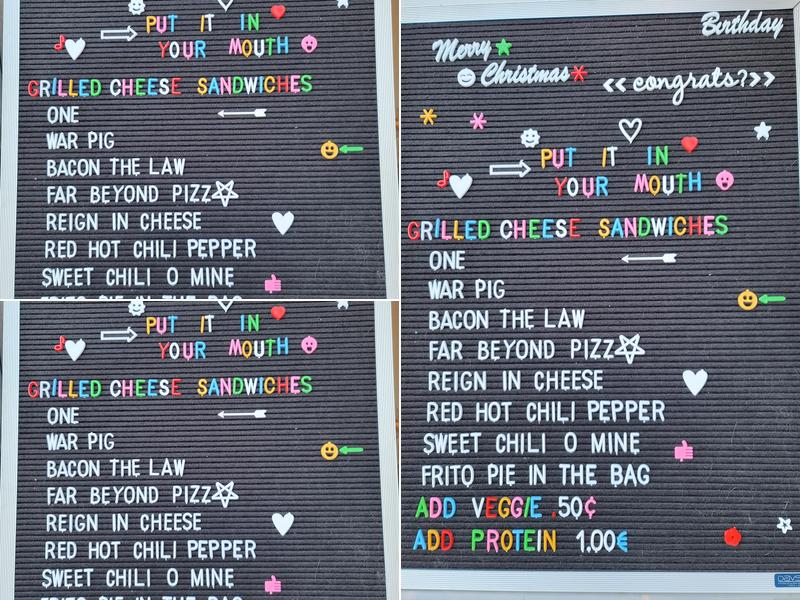 PUT IT IN
YOUR MOUTH
GRILLED CHEESE SANDWICHES
ONE
WAR PIG
BACON THE LAW
FAR BEYOND PIZZ
REIGN IN CHEESE
RED HOT CHILI PEPPER
SWEET CHILI O MINE
FRITO PIE IN THE BAG
PUT IT IN
YOUR MOUTH
GRILLED CHEESE SANDWICHES
ONE
WAR PIG
BACON THE LAW
FAR BEYOND PIZZ
REIGN IN CHEESE
RED HOT CHILI PEPPER
SWEET CHILI O MINE
FRITO PIE IN THE BAG
Birthday
Merry
Christmas
<< congrats?>>
PUT IT IN
YOUR MOUTH
GRILLED CHEESE SANDWICHES
ONE
WAR PIG
BACON THE LAW
FAR BEYOND PIZZ
REIGN IN CHEESE
RED HOT CHILI PEPPER
SWEET CHILI O MINE
FRITO PIE IN THE BAG
ADD VEGGIE .50¢
ADD PROTEIN 1.00€